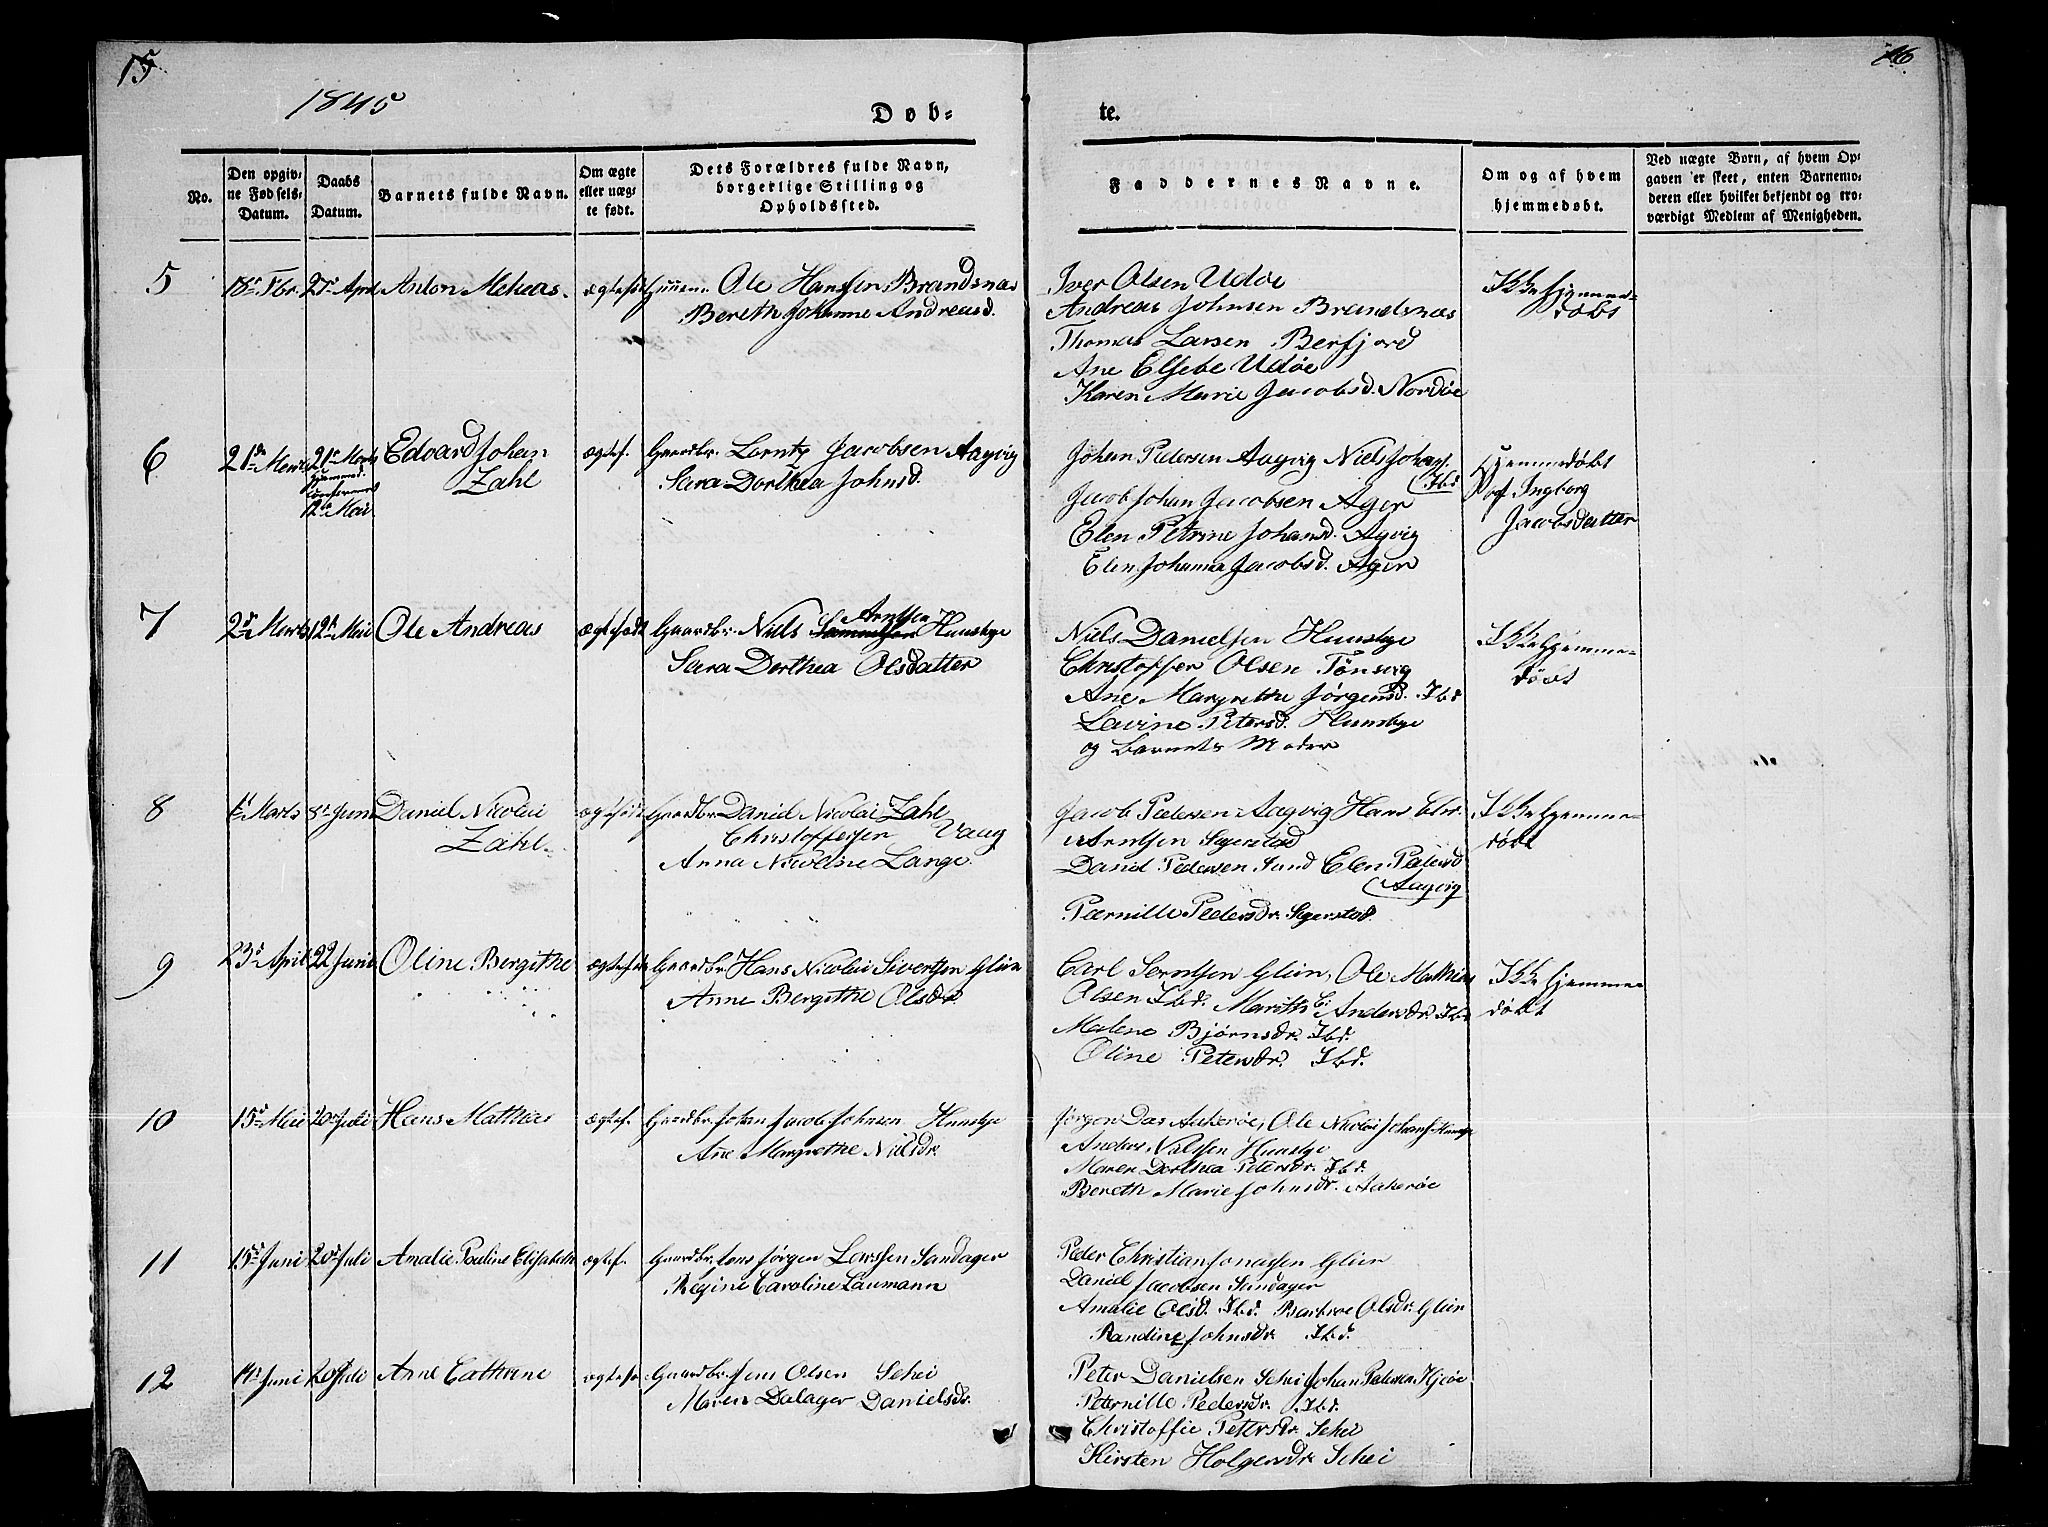 15
16
1845
Døb-
te.
No.
Den opgiv-
ne Fødsels-
Datum.
Daabs
Datum.
Barnets fulde Navn.
Om ægte
eller uæg-
te født.
Dets Forældres fulde Navn,
borgerlige Stilling og
Opholdssted.
Faddernes Navne.
Om og af hvem
hjemmedøbt.
Ved uægte Børn, af hvem Op-
gaven er skeet, enten Barnemo-
deren eller hvilket bekjendt og tro-
værdigt Medlem af Menigheden.
5 18de Fbr. 27de April Anton Meheas. ægtefødt Ole Hanssen Brandsnæs
Bereth Johanne Andreasd.
Iver Olsen Udøe
Andreas Johnsen Brandsnæs
Thomas Larsen Berfjord
Ane Elsebe Udøe
Karen Marie Jacobsd. Nordøe
Ikke hjemme-
døbt
6 21de Marts 21de Marts
hjemmed.
confirmered
12te Mai
Edvard Johan
Zahl
ægtef. Gaardbr. Lorntz Jacobsen Aagvig
Sara Dorthea Johnsd.
Johan Pedersen Aagvig Niels Johans.
Ibd
Jacob Johan Jacobsen Ager
Elen Petrine Johansd. Agvig
Elen Johanna Jacobsd. Ager
Hjemmedøbt
af Ingborg
Jacobsdatter
7 2de Marts 12te Mai Ole Andreas ægtefødt Gaardbr. Niels Samuelsen Arntsen Hunsbye
Sara Dorthea Olsdatter
Niels Danielsen Hunsbye
Christoffer Olsen Tønsvig
Ane Margrethe Jørgensd. Ibd
Lavine Petersd. Hunsbye
og Barnets Moder
Ikke hjemme-
døbt
8 1te Marts 8de Juni Daniel Nicolai
Zahl.
ægtefødt Gaardbr. Daniel Nicolai Zahl
Christoffersen Vaag
Anna Nicoline Lange.
Jacob Pedersen Aagvig Hans Chr.
Arntsen Segerstad
Daniel Pedersen Sund Elen Petersd
Aagvig
Pærnille Pedersdr. Segerstad.
Ikke hjemme-
døbt
9 23de April 22 Juni Oline Bergithe ægtefødt Gaardbr. Hans Nicolai Sivertsen Glein
Anne Bergithe Olsdr.
Carl Sørntsen Glein, Ole Mathias
Olsen Ibd. Marith C: Andersdr. Ibd
Malene Bjørnsdr. Ibd.
Oline Petersdr. Ibd.
Ikke hjemme-
døbt
10 15de Mai 20de Juli Hans Mathias ægtef. Gaardbr. Johan Jacob Johnsen Hunsbye
Ane Margrethe Nielsdr.
Jørgen Das Aakerøe, Ole Nicolai Johans. Hunsbye
Anders Nielsen Hunsbye
Maren Dorthea Petersdr. Ibd.
Bereth Marie Johnsdr. Aakerøe
11 15de Juni 20de Juli Amalie Pauline Elisabeth ægtef. Gaardbr. Jens Jørgen Larssen Sandager
Regine Caroline Laumann
Peder Christian Jonassen Glein
Daniel Jacobsen Sandager
Amalie Olsd. Ibd. Barbroe Olsdr. Glein
Randine Johnsdr. Ibd.
12 14de Juni 20de Juli Ane Cathrine ægtefø. Gaardbr. Jens Olsen Schei
Maren Dalager Danielsdr.
Peter Danielsen Schei Johan Pedersen Hjøe
Peternille Pedersdr. Ibd.
Christoffie Petersdr. Schei
Kirsten Holgersdr. Schei